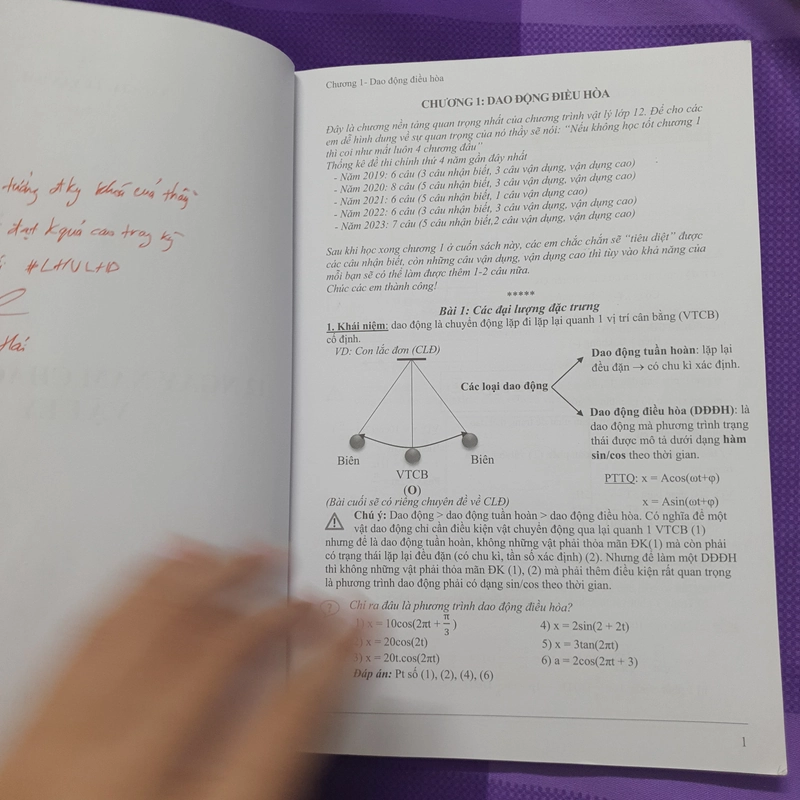 tưởng đky khoá của thầy
đạt kquả cao trong kỳ
#LHVLHD
Hải
Chương 1- Dao động điều hòa
CHƯƠNG 1: DAO ĐỘNG ĐIỀU HÒA
Đây là chương nền tảng quan trọng nhất của chương trình vật lý lớp 12. Để cho các
em dễ hình dung về sự quan trọng của nó thầy sẽ nói: "Nếu không học tốt chương 1
thì coi như mất luôn 4 chương đầu"
Thống kê đề thi chính thức 4 năm gần đây nhất
- Năm 2019: 6 câu (3 câu nhận biết, 3 câu vận dụng, vận dụng cao)
- Năm 2020: 8 câu (5 câu nhận biết, 3 câu vận dụng, vận dụng cao)
- Năm 2021: 6 câu (5 câu nhận biết, 1 câu vận dụng cao)
- Năm 2022: 6 câu (3 câu nhận biết, 3 câu vận dụng, vận dụng cao)
- Năm 2023: 7 câu (5 câu nhận biết,2 câu vận dụng, vận dụng cao)
Sau khi học xong chương 1 ở cuốn sách này, các em chắc chắn sẽ "tiêu diệt" được
các câu nhận biết, còn những câu vận dụng, vận dụng cao thì tùy vào khả năng của
mỗi bạn sẽ có thể làm được thêm 1-2 câu nữa.
Chúc các em thành công!
*****
Bài 1: Các đại lượng đặc trưng
1. Khái niệm: dao động là chuyển động lặp đi lặp lại quanh 1 vị trí cân bằng (VTCB)
cố định.
VD: Con lắc đơn (CLĐ)
Biên
VTCB
(O)
Biên
Các loại dao động
Dao động tuần hoàn: lặp lại
đều đặn → có chu kì xác định.
Dao động điều hòa (DĐĐH): là
dao động mà phương trình trạng
thái được mô tả dưới dạng hàm
sin/cos theo thời gian.
PTTQ: x = Acos(ωt+φ)
x = Asin(ωt+φ)
(Bài cuối sẽ có riêng chuyên đề về CLĐ)
Chú ý: Dao động > dao động tuần hoàn > dao động điều hòa. Có nghĩa để một
vật dao động chỉ cần điều kiện vật chuyển động qua lại quanh 1 VTCB (1)
nhưng để là dao động tuần hoàn, không những vật phải thỏa mãn ĐK(1) mà còn phải
có trạng thái lặp lại đều đặn (có chu kì, tần số xác định) (2). Nhưng để làm một DĐĐH
thì không những vật phải thỏa mãn ĐK (1), (2) mà phải thêm điều kiện rất quan trọng
là phương trình dao động phải có dạng sin/cos theo thời gian.
? Chỉ ra đâu là phương trình dao động điều hòa?
1) x = 10cos(2πt + π/3)
2) x = 20cos(2t)
3) x = 20t.cos(2πt)
4) x = 2sin(2 + 2t)
5) x = 3tan(2πt)
6) a = 2cos(2πt + 3)
Đáp án: Pt số (1), (2), (4), (6)
1